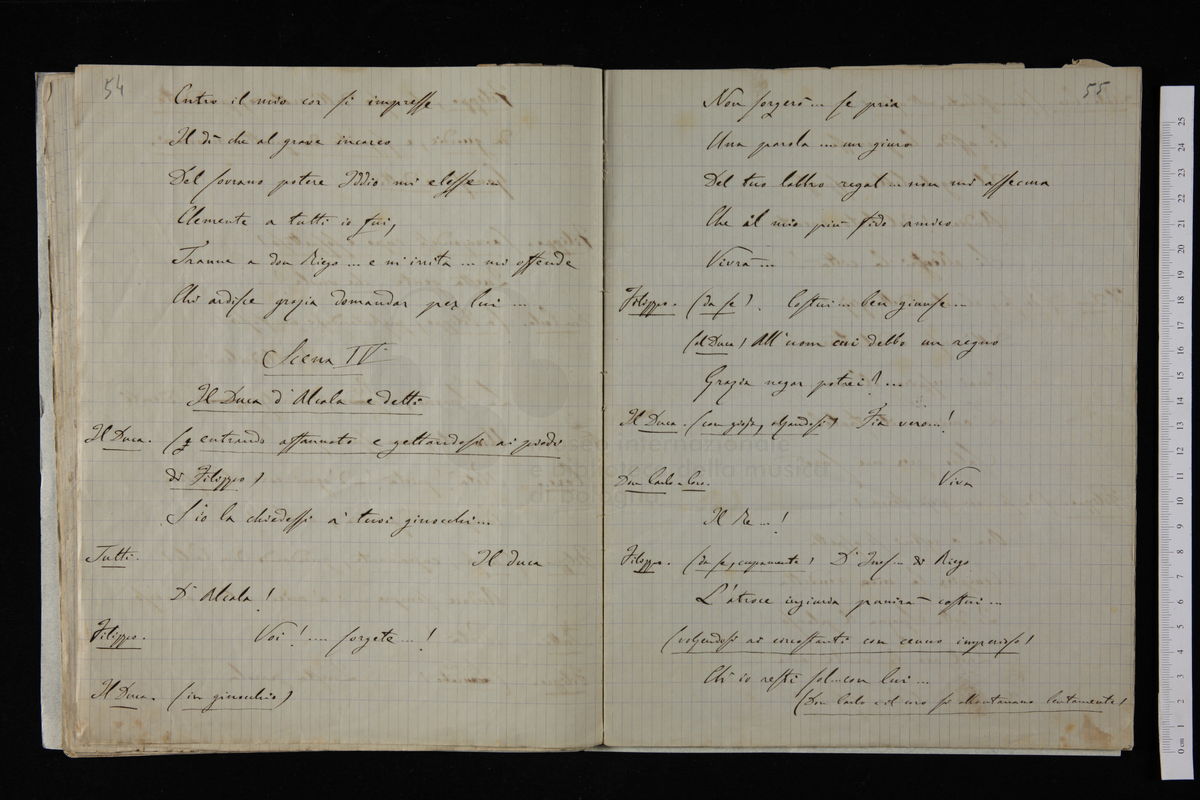 54
Entro il mio cor si impresse
Il dì che al grave incarco
Del sovrano potere Iddio mi elesse...
Clemente a tutti io fui,
Tranne a don Riego... e m'irrita... mi offende
Chi ardisce grazia domandar per lui...
Scena IV
Il Duca d'Alcala e detti
Il Duca. (entrando affannato e gettandosi ai piedi
di Filippo)
S'io la chiedessi a' tuoi ginocchi...
Tutti. Il duca
D'Alcala!
Filippo. Voi!.... sorgete...!
Il Duca. (in ginocchio)
55
Non sorgerò... se pria
Una parola... un giuro
Del tuo labbro regal... non mi assecura
Che il mio più fido amico
Vivrà...
Filippo. (da se). Costui... ben giunse...
(al Duca) All'uom cui debbo un regno
Grazia negar potrei?...
Il Duca. (con gioja, alzandosi) Fia vero...!
Don Carlo e Coro. Viva
Il Re...!
Filippo. (da se, cupamente) D'Ines... di Riego
L'atroce ingiuria punirà costui...
(volgendosi ai circostanti con cenno imperioso)
Ch'io resti sol... con lui...
(Don Carlo e il coro si allontanano lentamente)